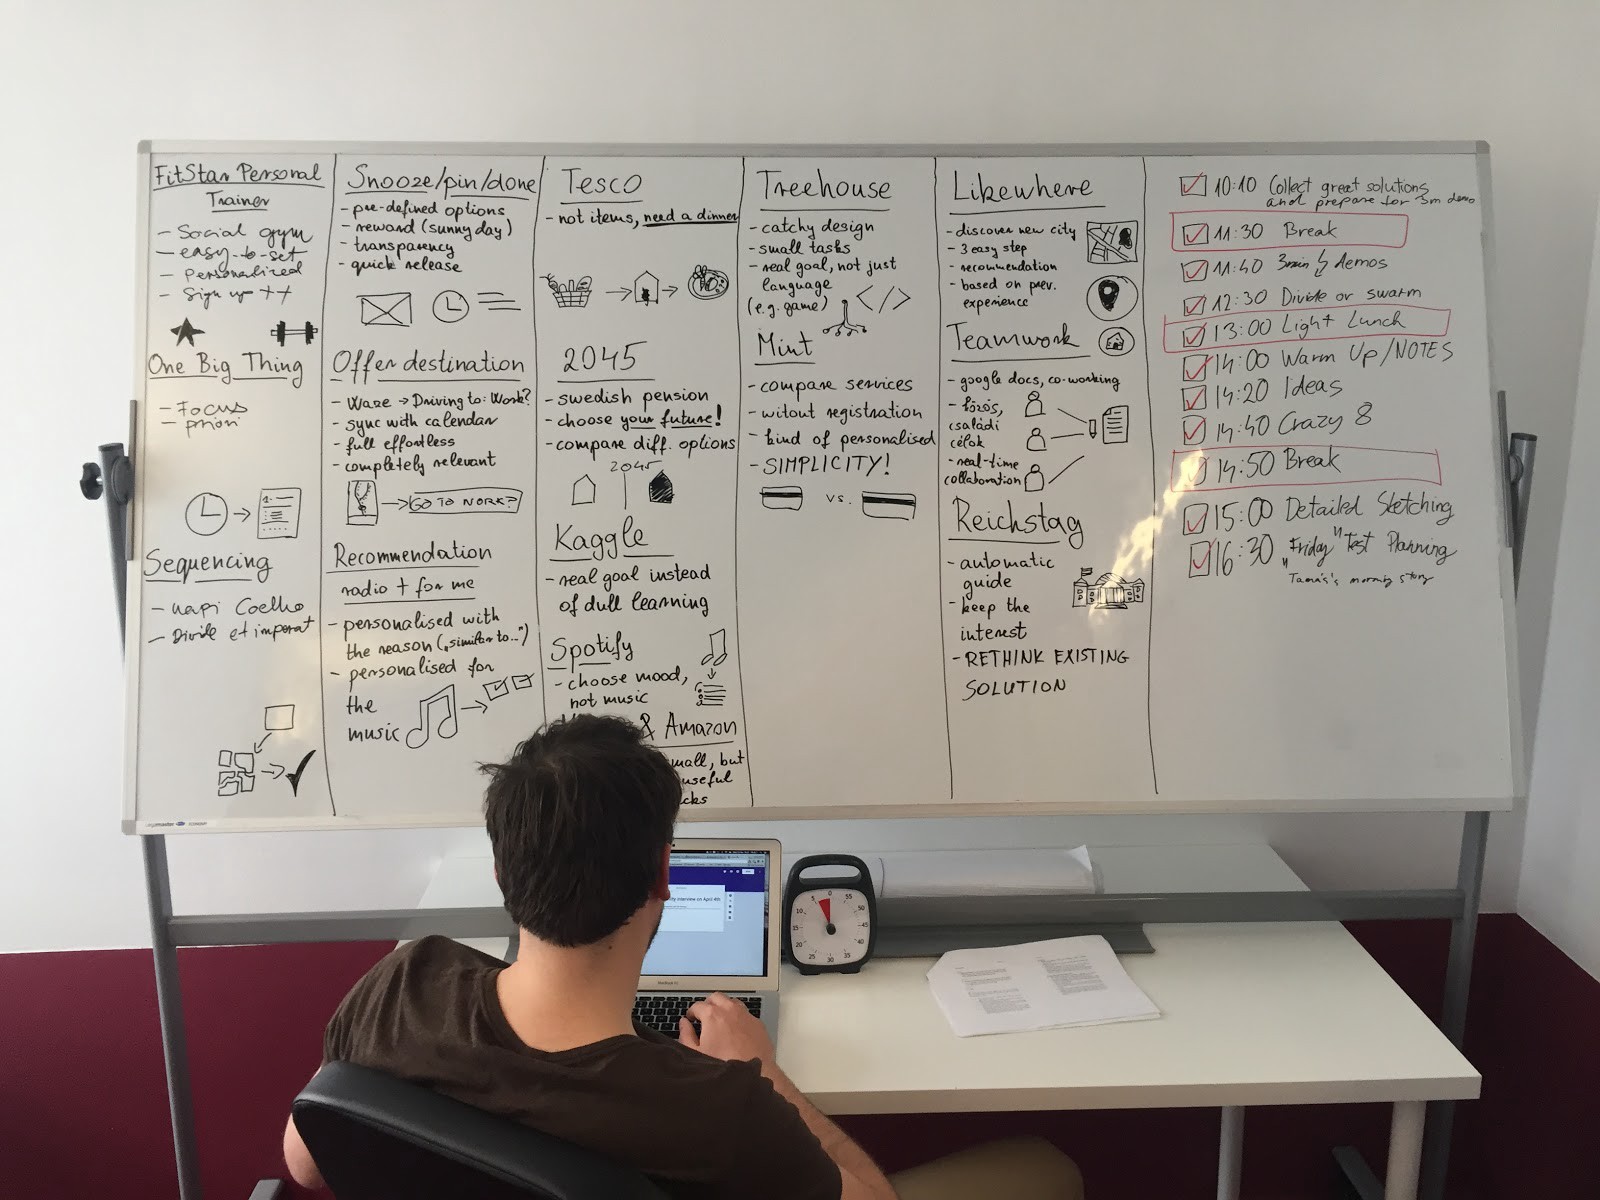 FitStar Personal
Trainer
- Social gym
- easy-to-set
- Personalized
- Sign up ++
One Big Thing
- Focus
- priori
1.
Sequencing
- napi Coelho
- Divide et imperat
Snooze/pin/done
- pre-defined options
- reward (sunny day)
- transparency
- quick release
Offer destination
- Waze → Driving to: Work?
- sync with calendar
- full effortless
- completely relevant
→ GO TO WORK?
Recommendation
radio + for me
- personalised with
the reason („similar to...")
- personalised for
the
music
Tesco
- not items, need a dinner
2045
- swedish pension
- choose your future!
- compare diff. options
2045
Kaggle
- real goal instead
of dull learning
Spotify
- choose mood,
not music
& Amazon
mall, but
useful
cks
Treehouse
- catchy design
- small tasks
- real goal, not just
language
(e.g. game)
</>
Mint
- compare services
- witout registration
- kind of personalised
- SIMPLICITY!
vs.
Likewhere
- discover new city
- 3 easy step
- recommendation
- based on prev.
experience
Teamwork
- google docs, co-working
- közös,
családi
célok
- real-time
collaboration
Reichstag
- automatic
guide
- keep the
interest
- RETHINK EXISTING
SOLUTION
10:10 Collect great solutions
and prepare for 3m demo
11:30 Break
11:40 3min demos
12:30 Divide or swarm
13:00 Light Lunch
14:00 Warm Up/NOTES
14:20 Ideas
14:40 Crazy 8
14:50 Break
15:00 Detailed Sketching
16:30 "Friday" Test Planning
Tamás's morning story
interview on April 4th
MacBook Air
0
55
50
45
40
35
30
25
20
15
10
5